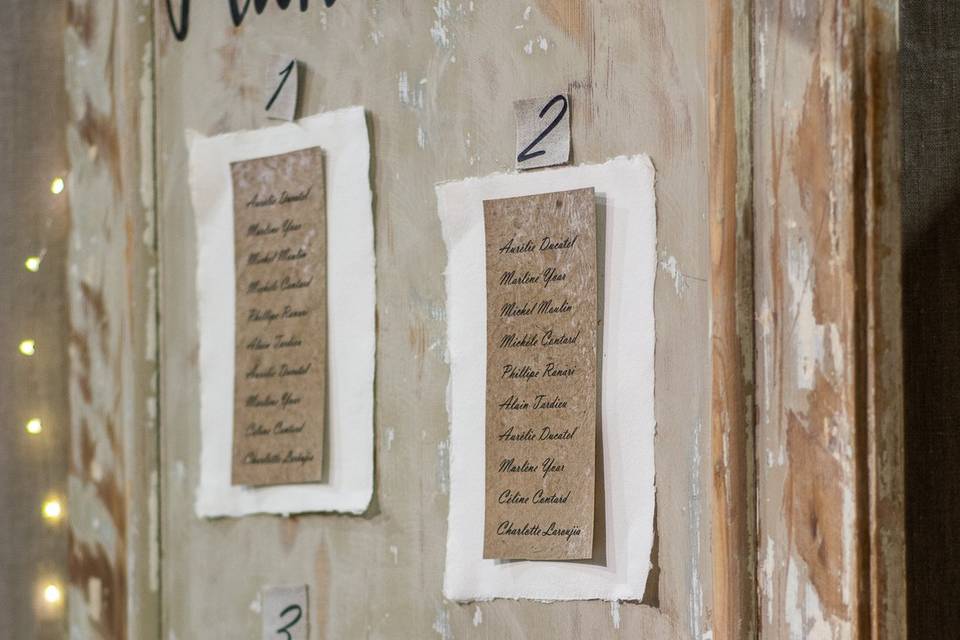 1
Aurélie Ducatel
Marlène Yvar
Michel Moulin
Michèle Contard
Phillipe Ranari
Alain Tardieu
Aurélie Ducatel
Marlène Yvar
Céline Contard
Charlotte Laroujia
2
Aurélie Ducatel
Marlène Yvar
Michel Moulin
Michèle Contard
Phillipe Ranari
Alain Tardieu
Aurélie Ducatel
Marlène Yvar
Céline Contard
Charlotte Laroujia
3